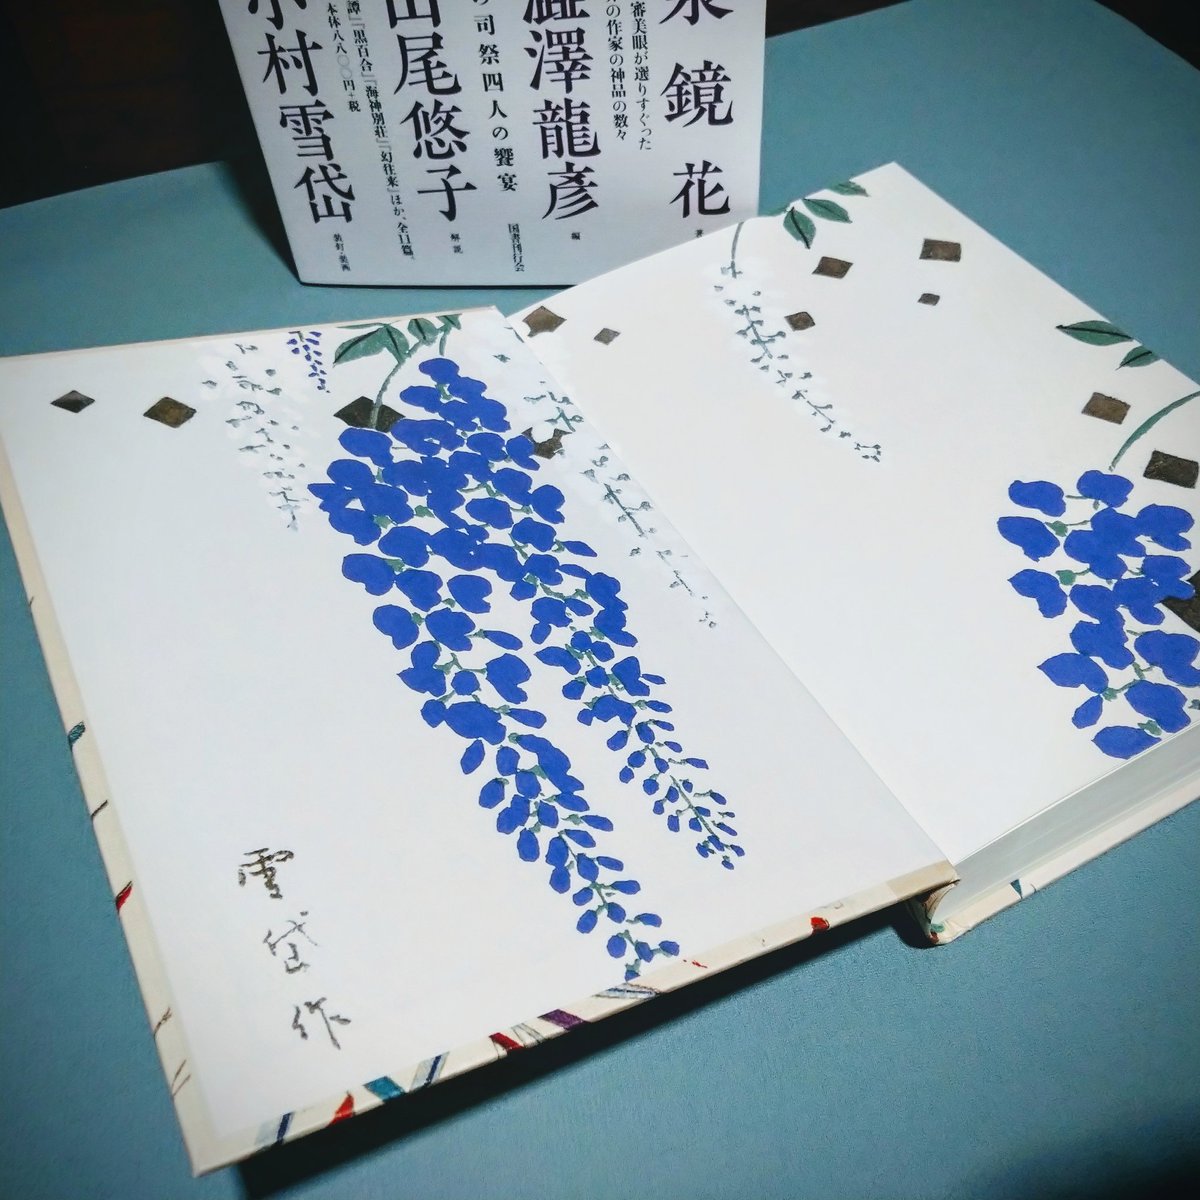 泉鏡花 著
審美眼が選りすぐった
の作家の神品の数々
澁澤龍彥 編
の司祭四人の饗宴
国書刊行会
山尾悠子 解説
譚』『黒百合』『海神別荘』『幻往来』ほか、全11篇。
本体八八〇〇円+税
小村雪岱 装釘・装画
雪岱作